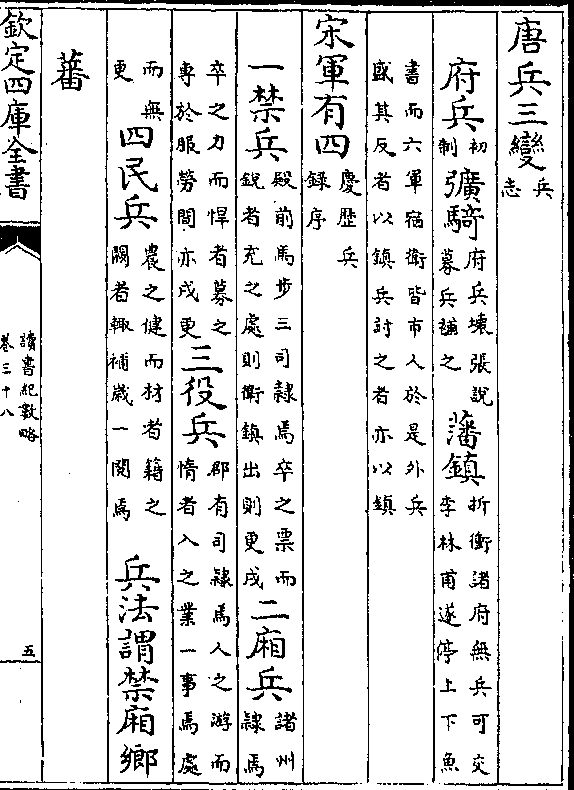 唐兵三變 兵志
府兵 初制 彍騎 府兵壊張説募兵補之 藩鎮 折衝諸府無兵可交李林甫遂停上下魚
書而六軍宿衛皆市人於是外兵盛其反者以鎮兵討之者亦以鎮
宋軍有四 慶歴兵録序
一禁兵 殿前馬步三司隷焉卒之票而銳者充之處則衛鎮出則更戍 二廂兵 諸州隷焉
卒之力而悍者募之専於服勞間亦戍更 三役兵 郡有司隷焉人之游而惰者入之業一事焉處
而無更 四民兵 農之健而材者籍之闕者輙補歳一閱焉 兵法謂禁廂鄉
蕃
欽定四庫全書
讀書紀數略
卷三十八
五